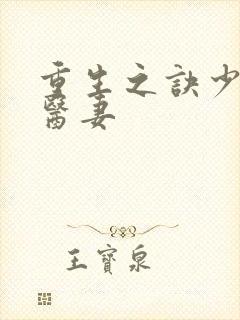 重生之訣少
醫妻
王寶泉